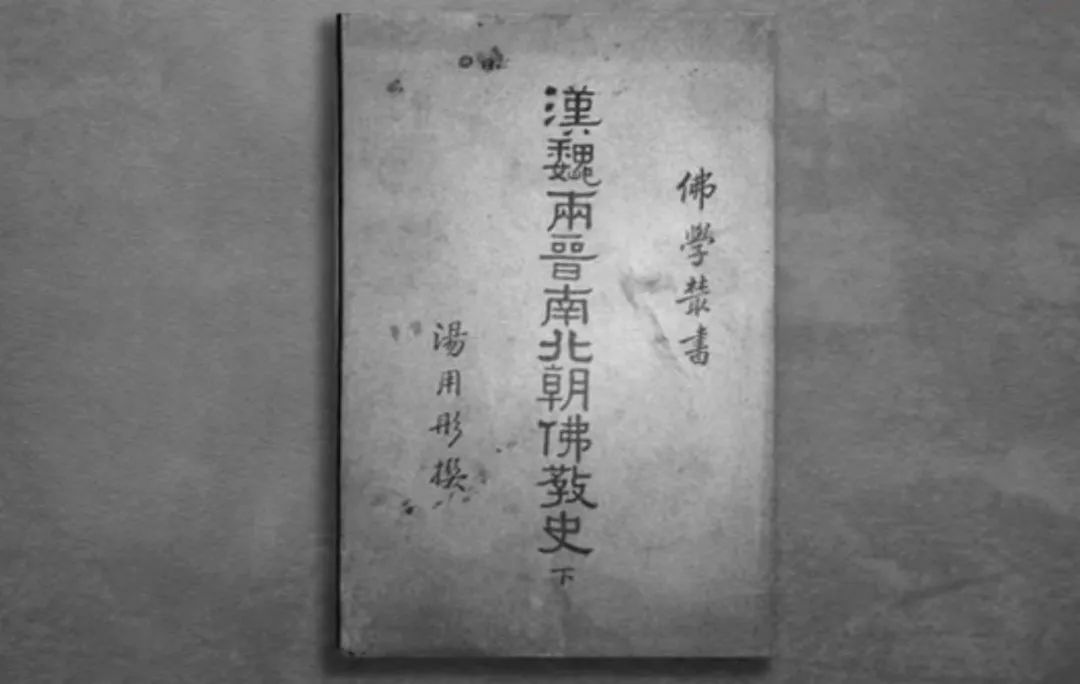 佛學叢書
漢魏兩晉南北朝佛教史
下
湯用彤撰